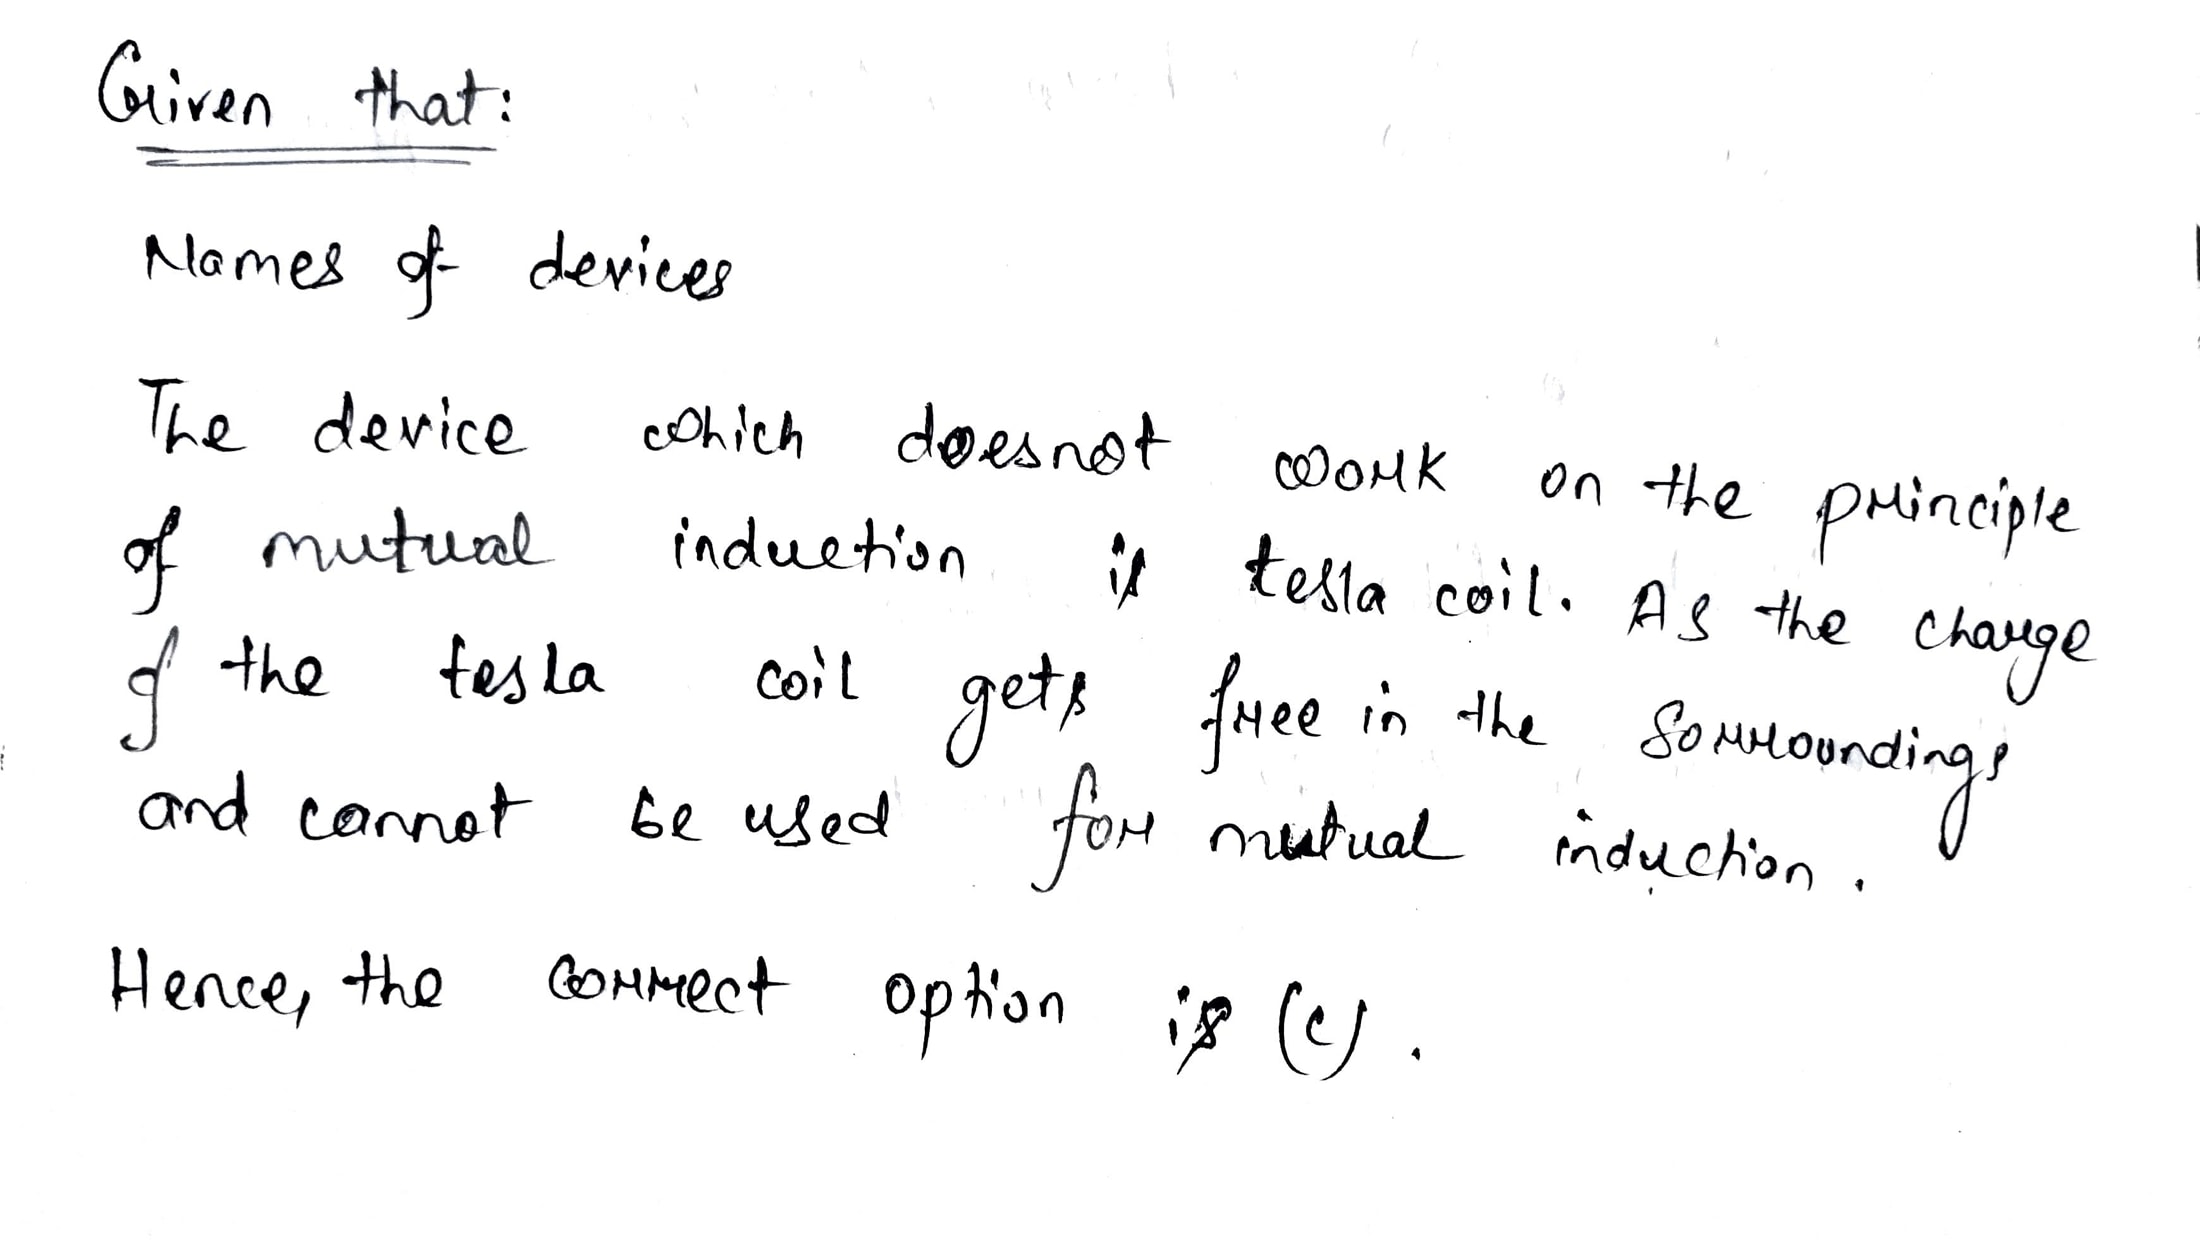 Given that:
Names of devices
The device which doesnot work on the principle
of mutual induction is tesla coil. As the charge
of the tesla coil gets free in the sorroundings
and cannot be used for mutual induction.
Hence, the correct option is (c).